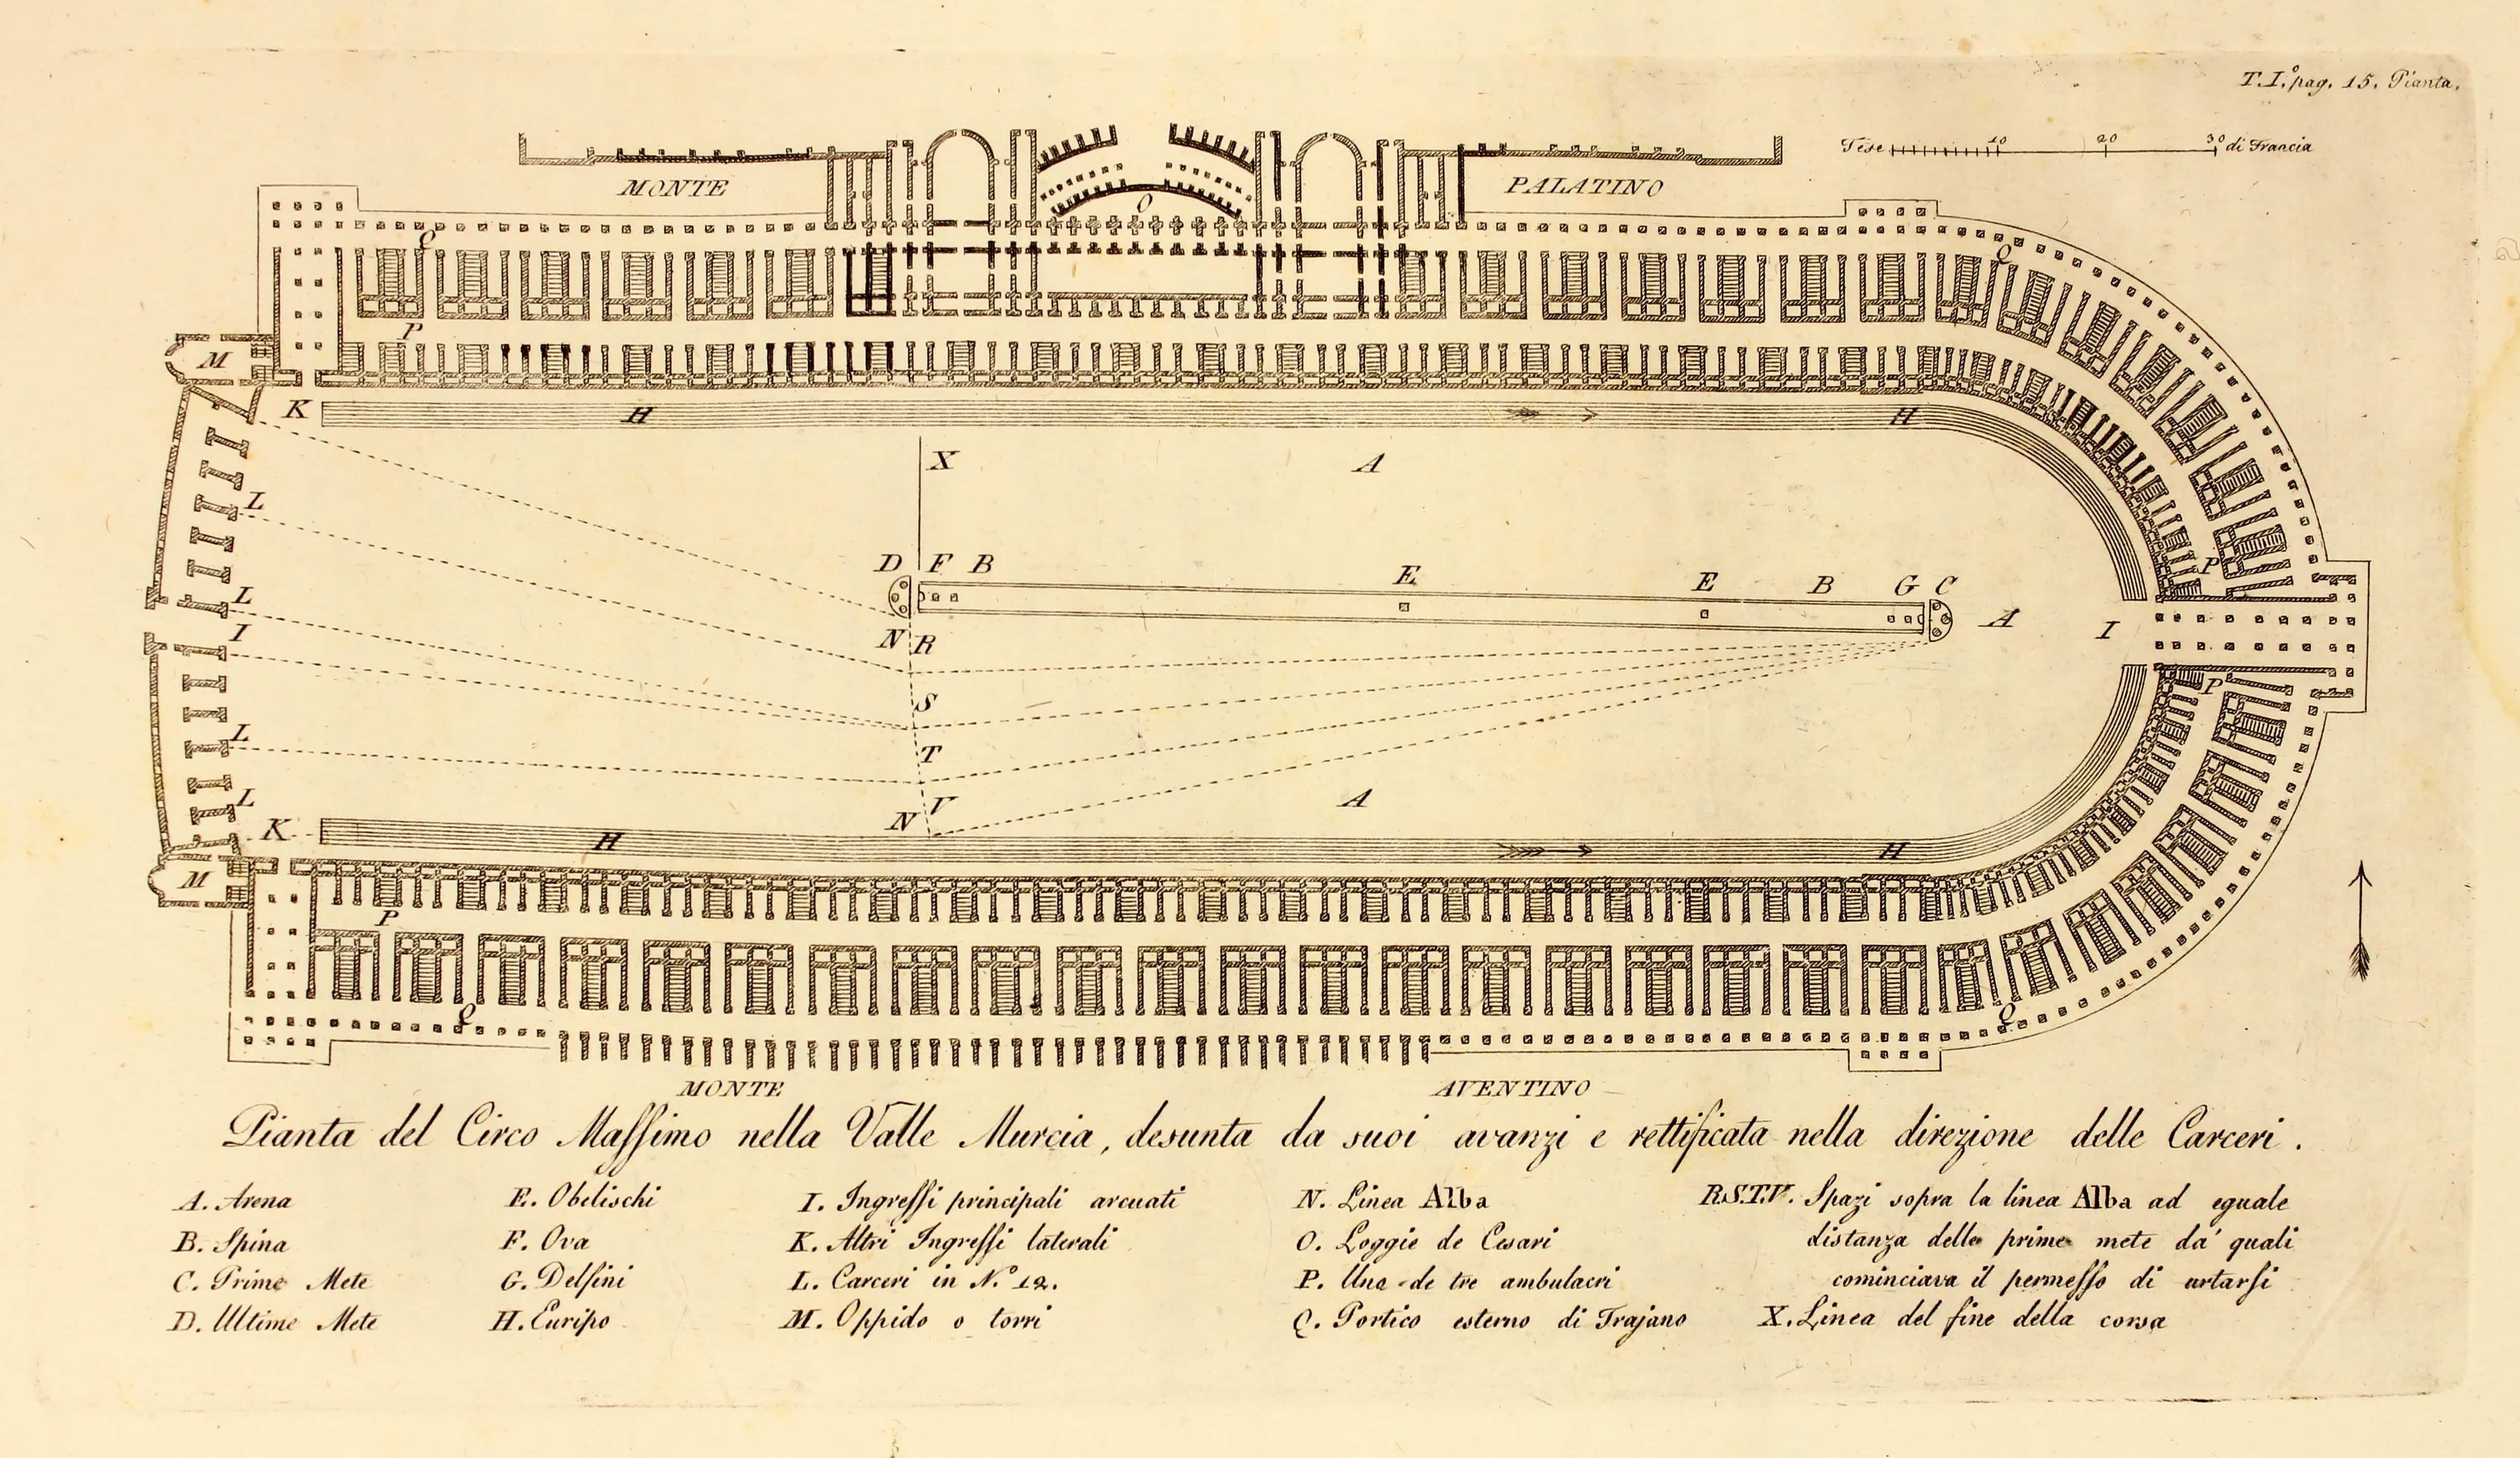 T.I.º pag. 15. Pianta.
Tese 10 20 30 di Francia
MONTE PALATINO
O
Q Q
P
M
K H H
X A
L
D F B E E B G C
L P
I N R A I
S P
L T
L N V A
K H H
M
P
Q Q
MONTE AVENTINO
Pianta del Circo Maſsimo nella Valle Murcia, desunta da suoi avanzi e rettificata nella direzione delle Carceri.
A. Arena
B. Spina
C. Prime Mete
D. Ultime Mete
E. Obelischi
F. Ova
G. Delfini
H. Euripo
I. Ingreſsi principali arcuati
K. Altri Ingreſsi laterali
L. Carceri in N.º 12.
M. Oppido o torri
N. Linea Alba
O. Loggie de Cesari
P. Uno de tre ambulacri
Q. Portico esterno di Trajano
R.S.T.V. Spazi sopra la linea Alba ad eguale
distanza delle prime mete da' quali
cominciava il permeſso di urtarsi
X. Linea del fine della corsa